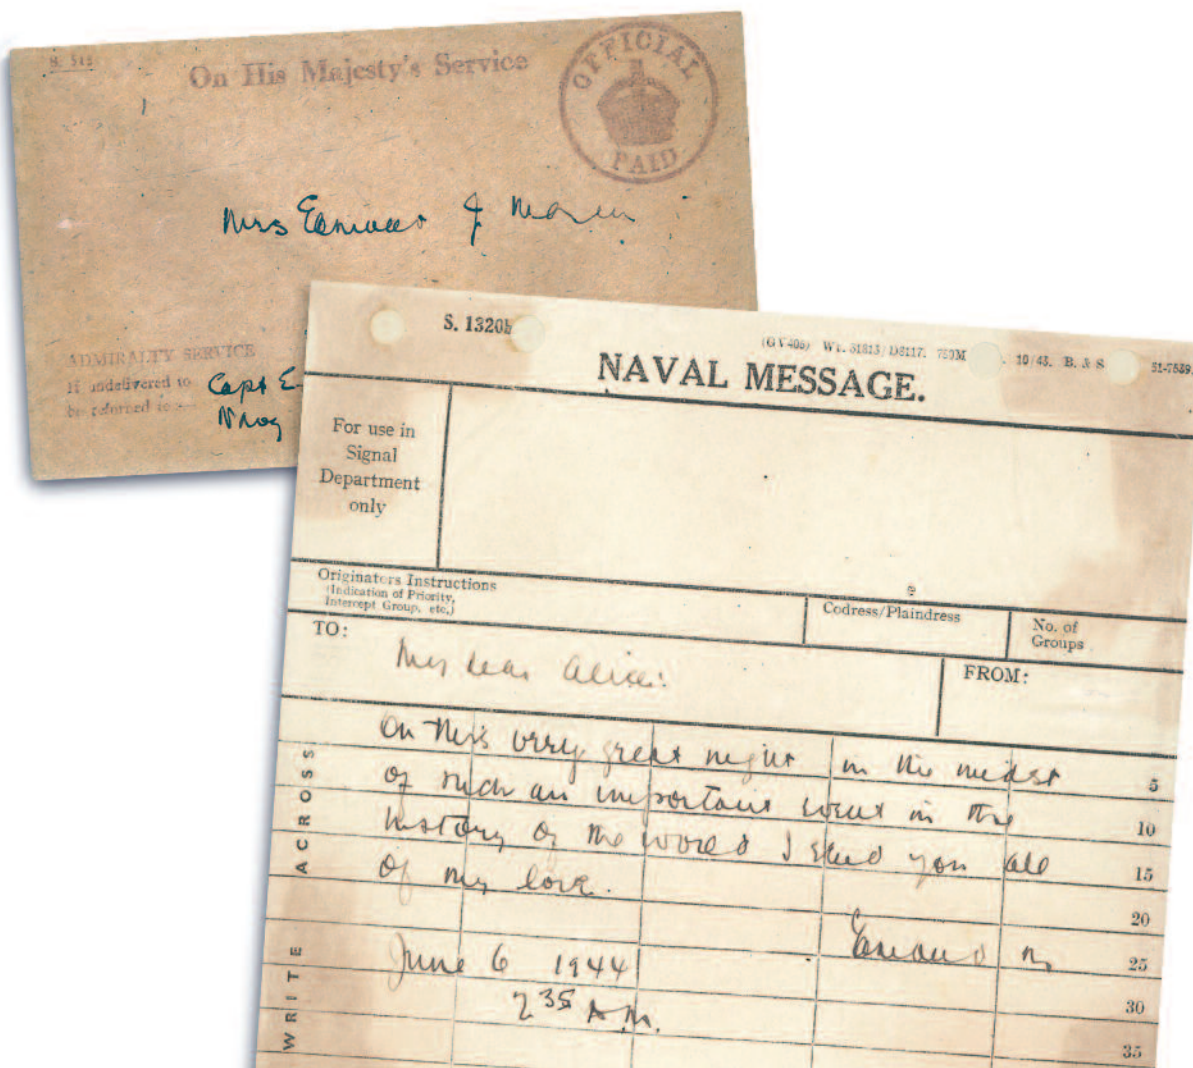 S. 515
On His Majesty's Service
OFFICIAL
PAID
Mrs Edmund J Moran
ADMIRALTY SERVICE
If undelivered to Capt E
be referred to —
S. 1320b
(GV405) Wt. 31813/D8117. 750M 10/43. B. & S 51-7559
NAVAL MESSAGE.
For use in
Signal
Department
only
Originators Instructions
(Indication of Priority,
Intercept Group, etc.)
Codress/Plaindress
No. of
Groups
TO:
My dear Alice:
FROM:
On this very great night in the midst 5
of such an important event in the 10
history of the world I send you all 15
of my love. 20
Edmund M 25
June 6 1944
2 35 A.M. 30
35
WRITE ACROSS